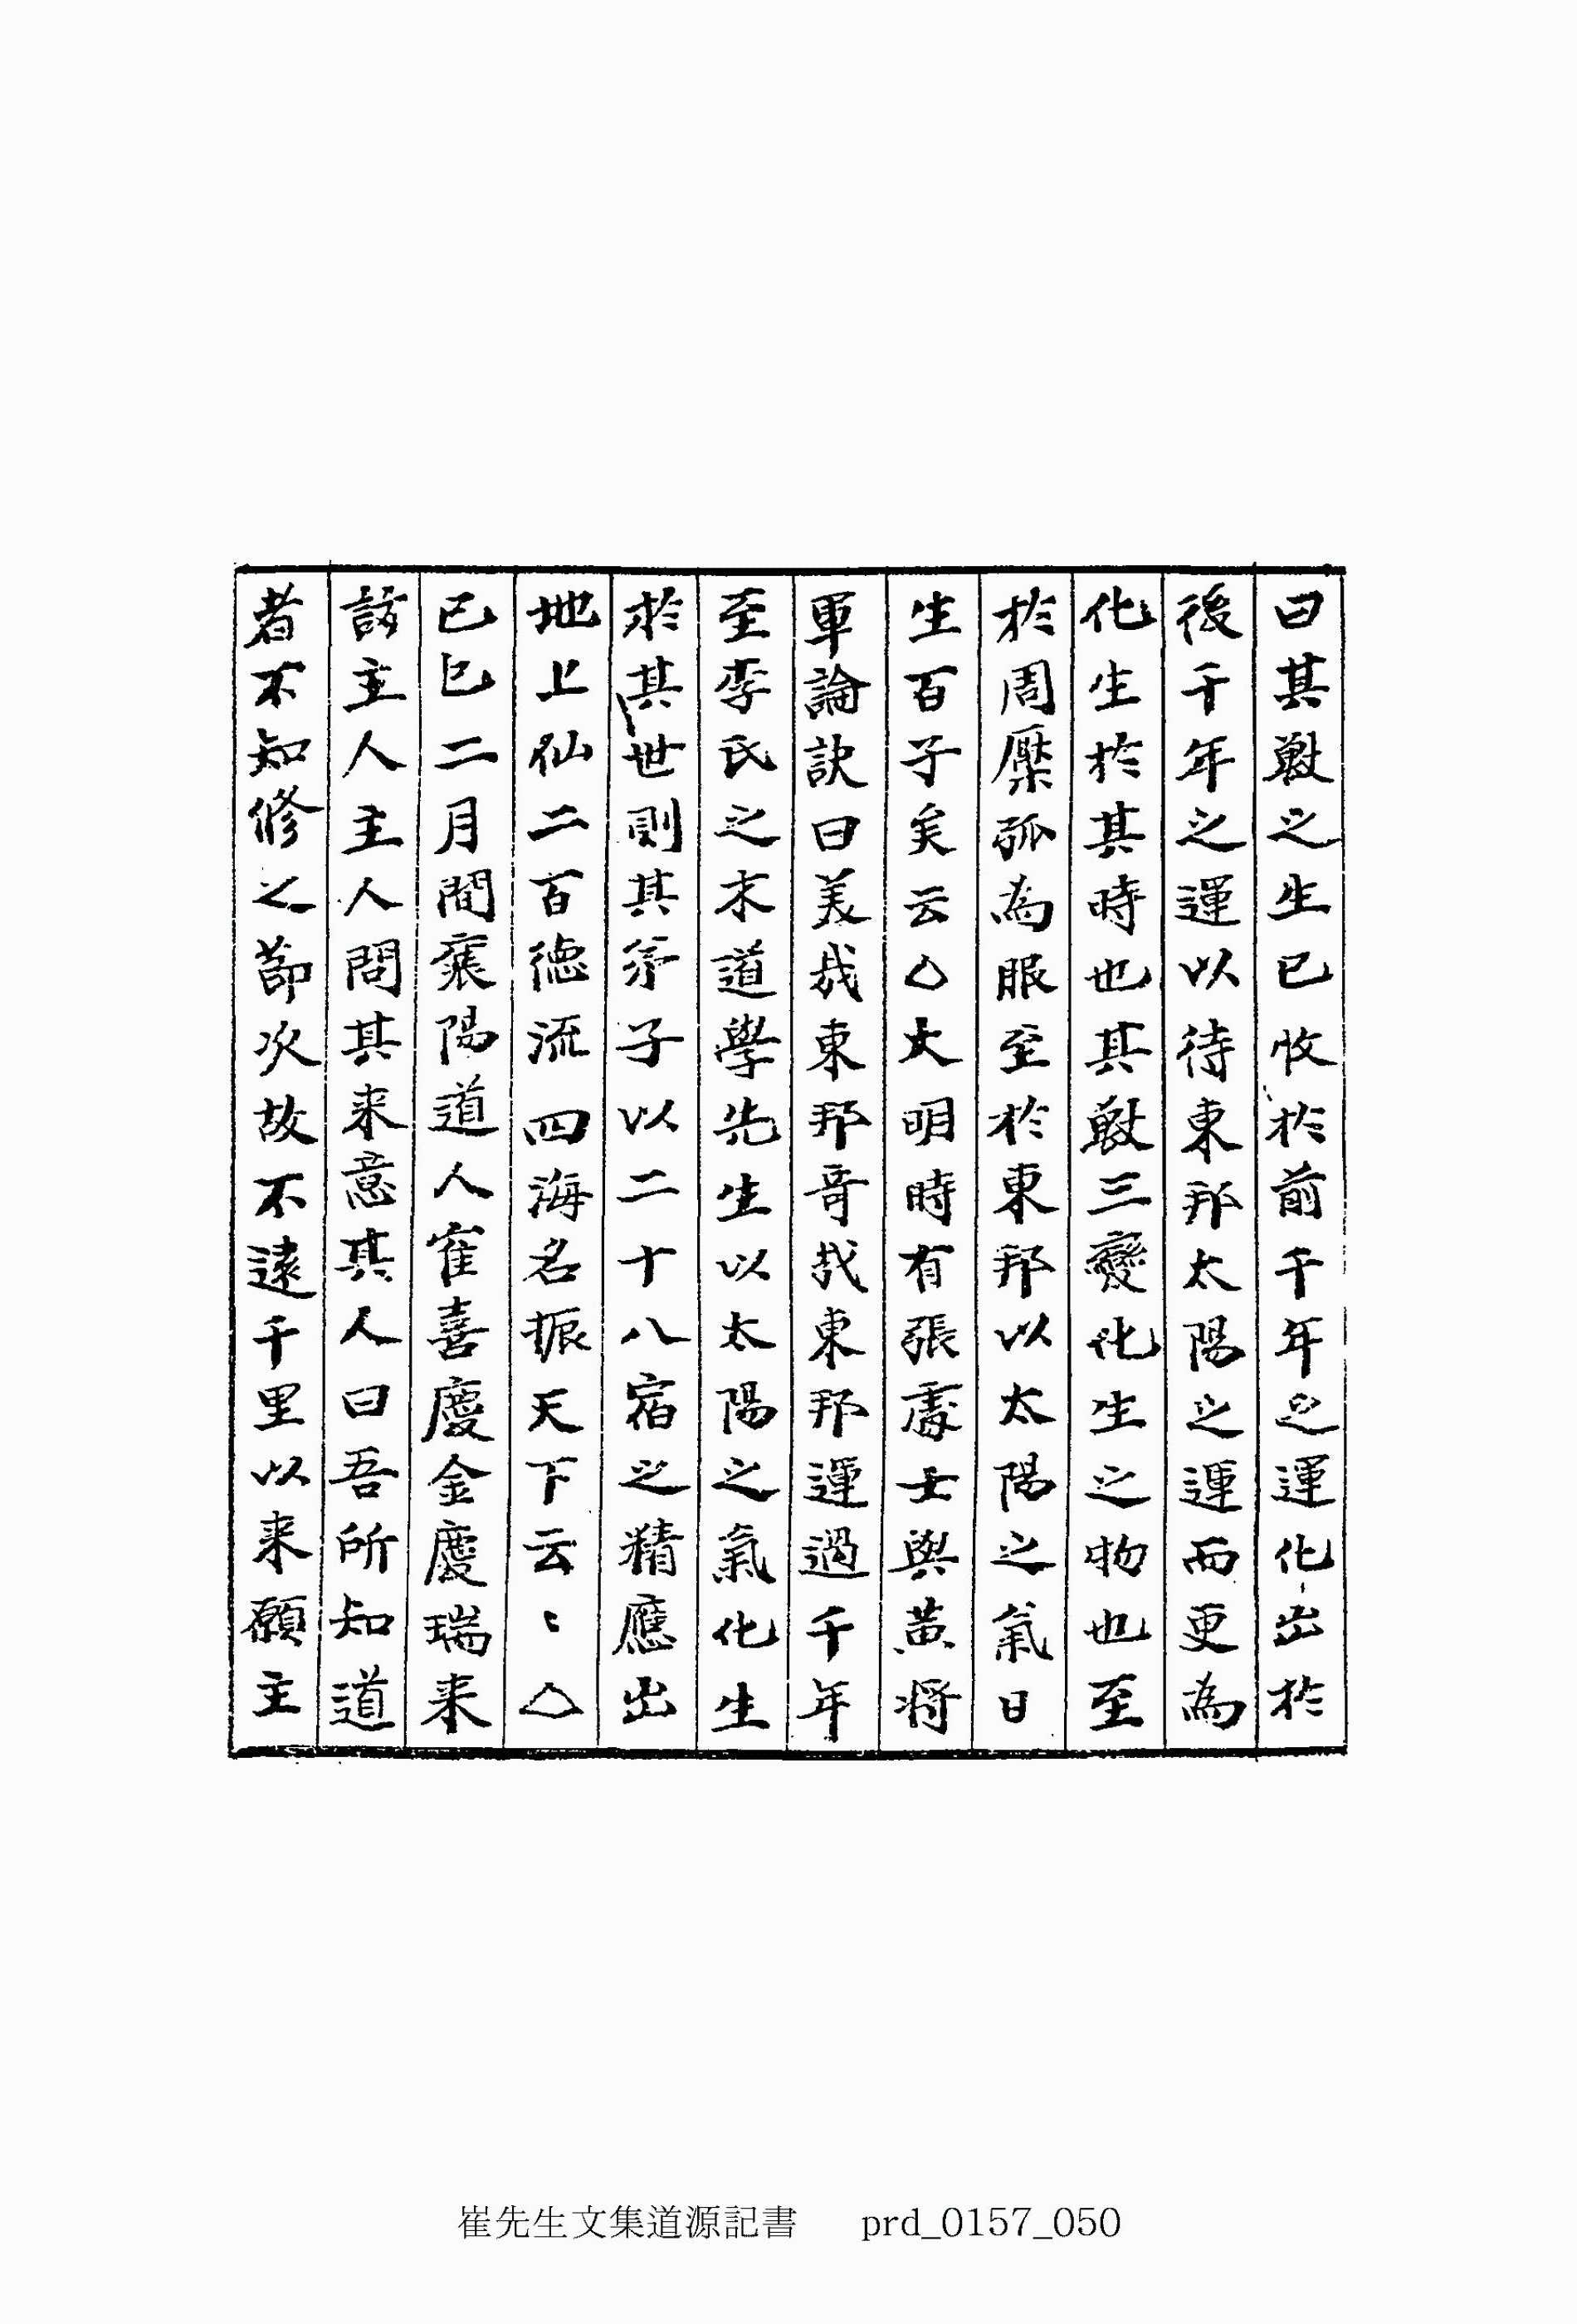 曰其數之生已收於前千年之運化出於
後千年之運以待東邦太陽之運而更為
化生於其時也其數三變化生之物也至
於周檿弧為眼至於東邦以太陽之氣日
生百子矣云△大明時有張處士與黃將
軍論訣曰美哉東邦竒哉東邦運過千年
至李氏之末道學先生以太陽之氣化生
於其世則其弟子以二十八宿之精應出
地上仙二百德流四海名振天下云〻△
己巳二月間襄陽道人崔喜慶金慶瑞来
訪主人主人問其来意其人曰吾所知道
者不知修之節次故不遠千里以来願主
崔先生文集道源記書 prd_0157_050